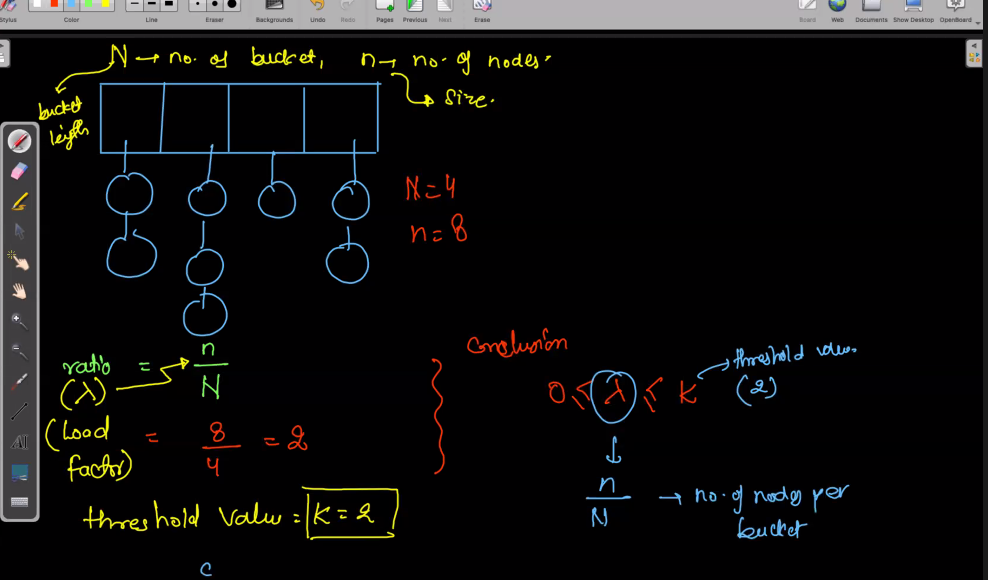 Stylus
Color
Line
Eraser
Backgrounds
Undo
Redo
Pages
Previous
Next
Erase
Board
Web
Documents
Show Desktop
OpenBoard
N → no. of bucket, n → no. of nodes.
bucket length
size.
N = 4
n = 8
ratio = n/N
(λ)
(Load factor) = 8/4 = 2
threshold value = K = 2
Conclusion
0 ≤ λ ≤ K → threshold value (2)
n/N → no. of nodes per bucket